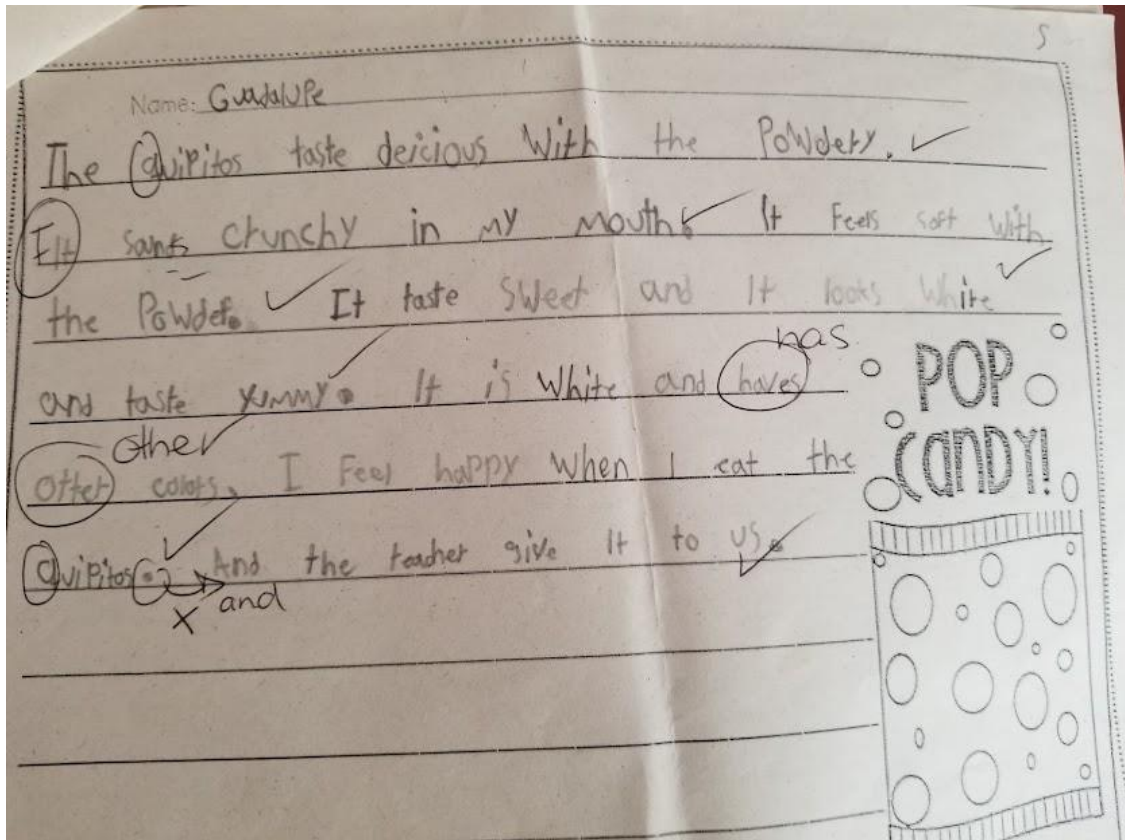 5
Name: Guadalupe
The Quipitos taste deicious With the Powdery.
It sants crunchy in my mouth. It Feels soft with
the Powder. It taste sweet and It looks white
has
and taste yummy. It is White and haves
other
otter colors. I Feel happy when I eat the
Quipitos. And the teacher give It to us.
x and
POP
CANDY!